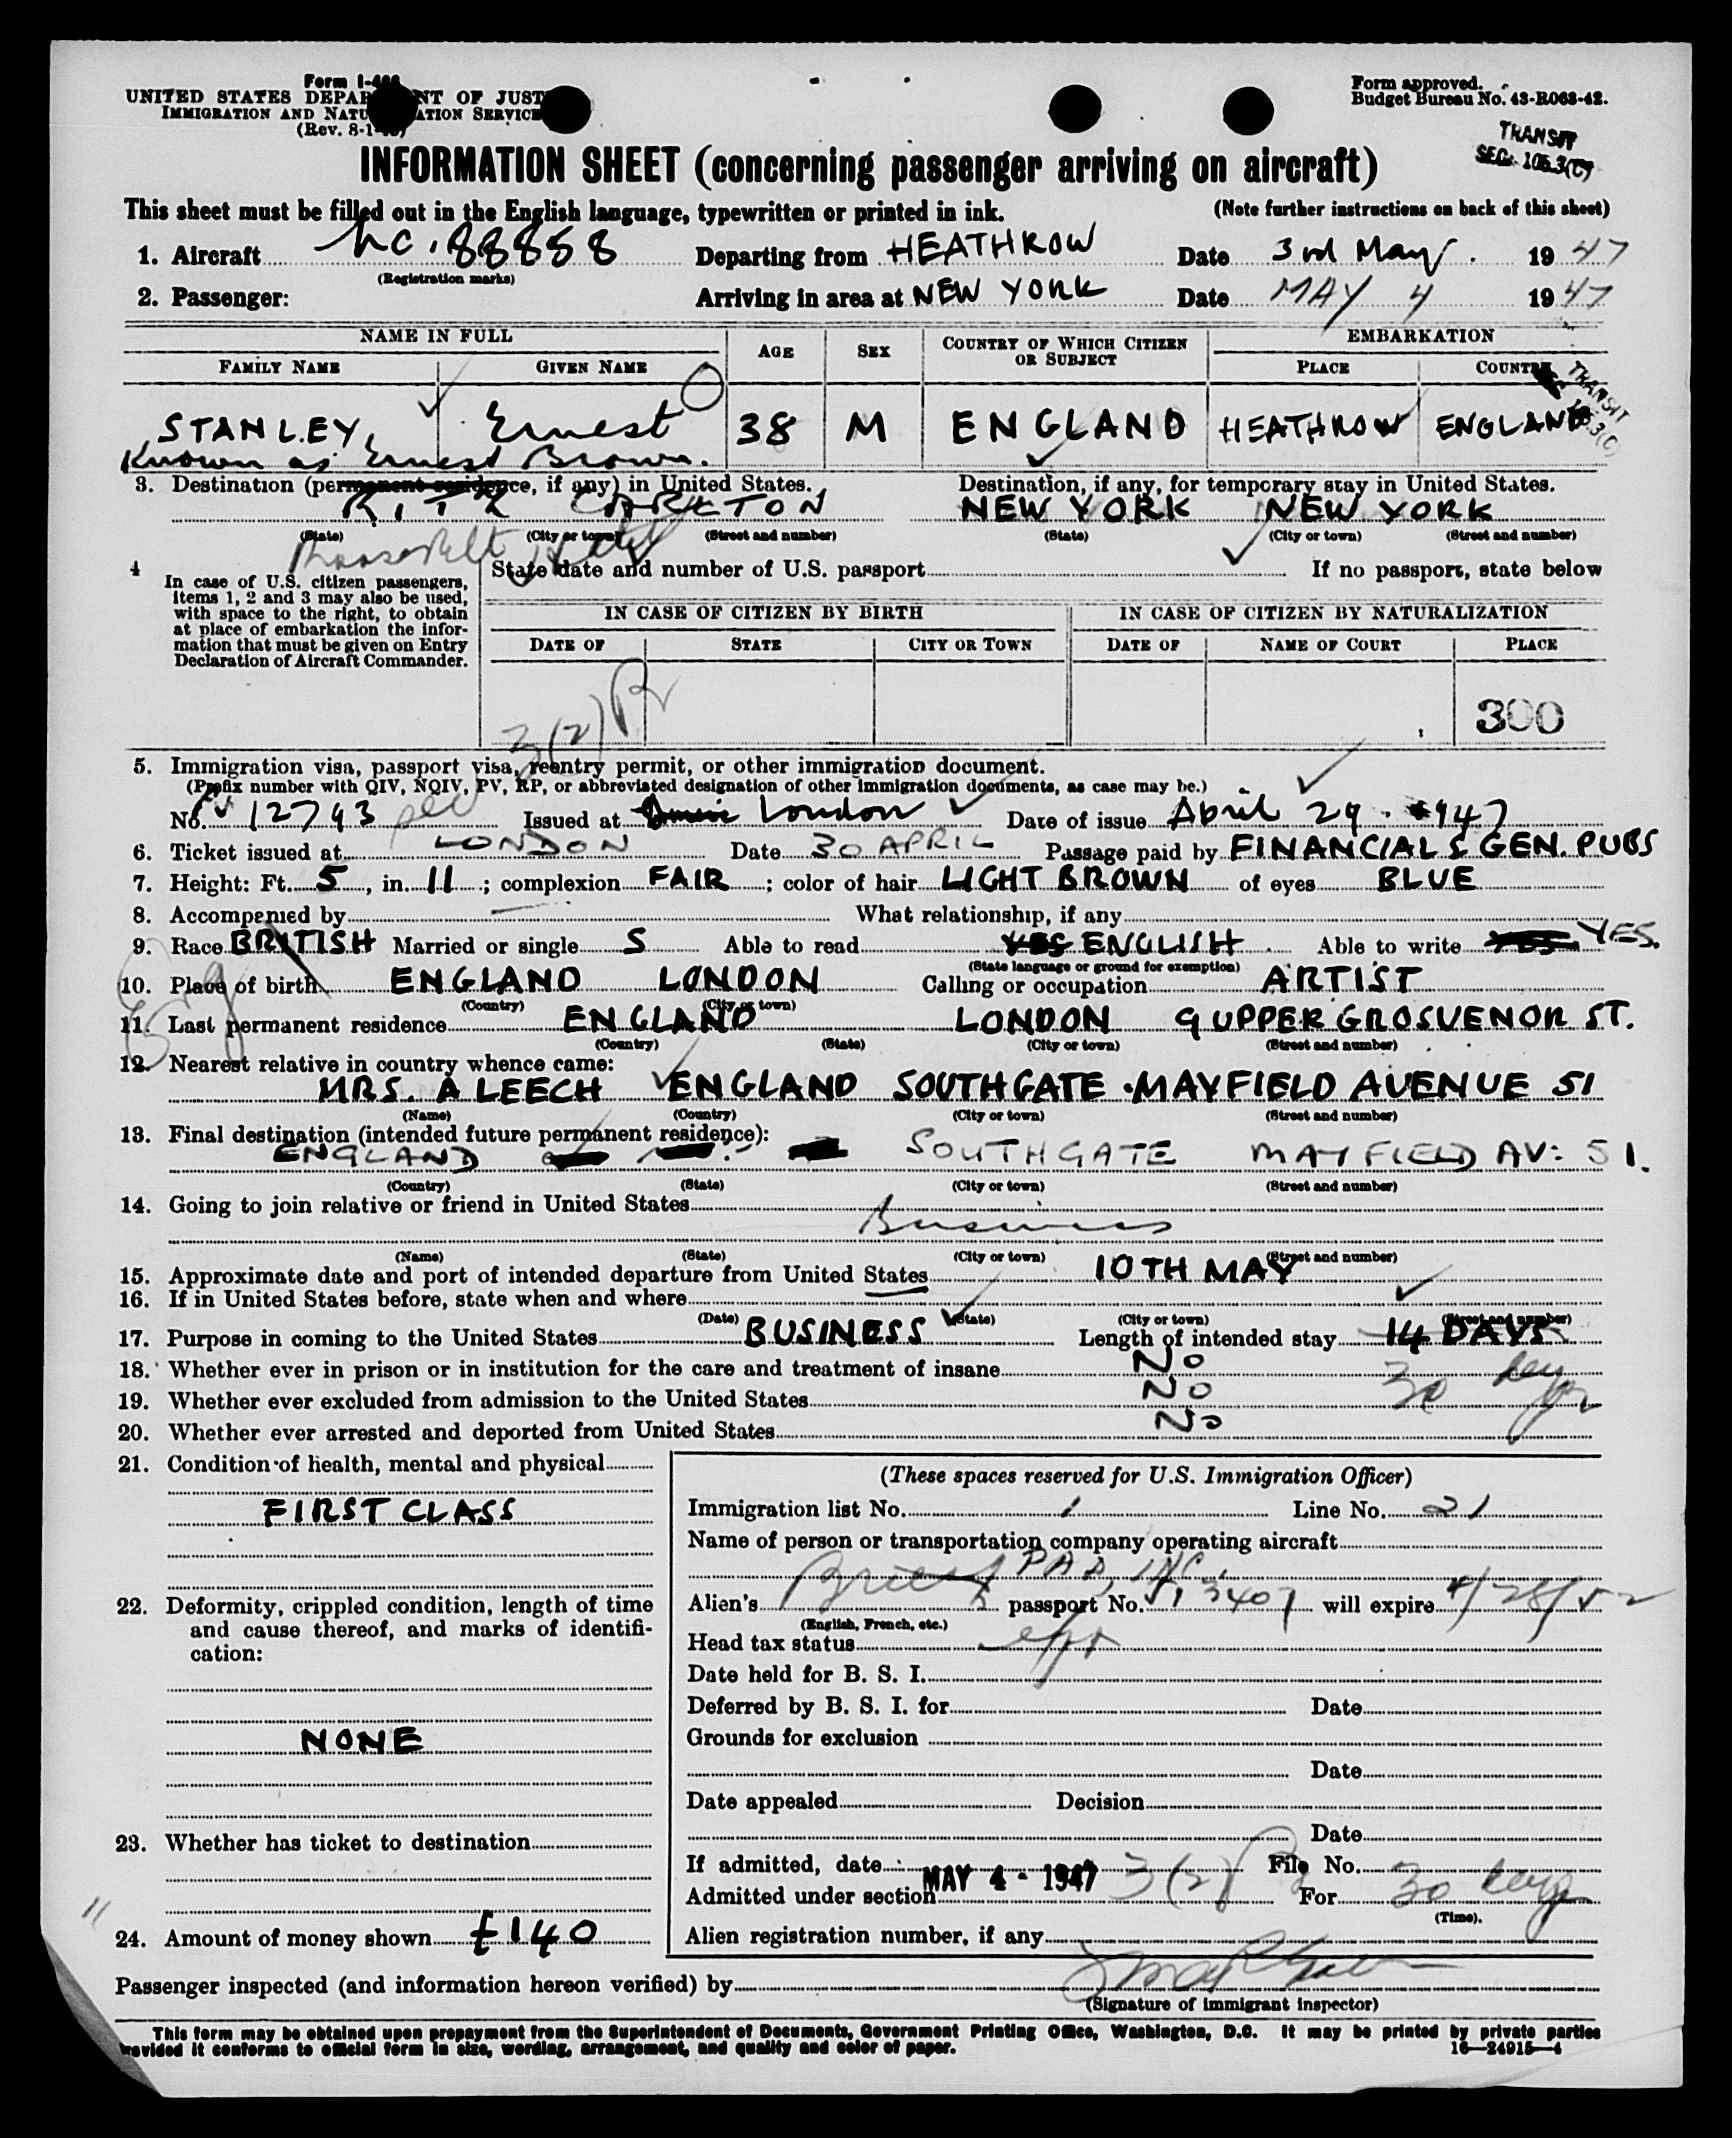 Form I-466
UNITED STATES DEPARTMENT OF JUSTICE
IMMIGRATION AND NATURALIZATION SERVICE
(Rev. 8-1-45)
Form approved.
Budget Bureau No. 43-R063-42.
TRANSIT
SEC. 105.3(C)
INFORMATION SHEET (concerning passenger arriving on aircraft)
This sheet must be filled out in the English language, typewritten or printed in ink. (Note further instructions on back of this sheet)
1. Aircraft NC. 88858 Departing from HEATHROW Date 3rd May. 1947
(Registration marks)
2. Passenger: Arriving in area at NEW YORK Date MAY 4 1947
NAME IN FULL AGE SEX COUNTRY OF WHICH CITIZEN OR SUBJECT EMBARKATION
FAMILY NAME GIVEN NAME PLACE COUNTRY
TRANSIT
105.3(C)
STANLEY, Ernest 38 M ENGLAND HEATHROW ENGLAND
Known as Ernest Brown.
3. Destination (permanent residence, if any) in United States. Destination, if any, for temporary stay in United States.
RITZ CARLTON NEW YORK NEW YORK
(State) (City or town) (Street and number) (State) (City or town) (Street and number)
Roosevelt Hotel
4 In case of U.S. citizen passengers, items 1, 2 and 3 may also be used, with space to the right, to obtain at place of embarkation the information that must be given on Entry Declaration of Aircraft Commander.
State date and number of U.S. passport If no passport, state below
IN CASE OF CITIZEN BY BIRTH IN CASE OF CITIZEN BY NATURALIZATION
DATE OF STATE CITY OR TOWN DATE OF NAME OF COURT PLACE
3(2) 300
5. Immigration visa, passport visa, reentry permit, or other immigration document.
(Prefix number with QIV, NQIV, PV, RP, or abbreviated designation of other immigration documents, as case may be.)
No. PV 12793 Issued at London Date of issue April 29. 1947
6. Ticket issued at LONDON Date 30 APRIL Passage paid by FINANCIAL & GEN. PUBS
7. Height: Ft. 5, in. 11; complexion FAIR; color of hair LIGHT BROWN of eyes BLUE
8. Accompanied by — What relationship, if any
9. Race BRITISH Married or single S Able to read YES ENGLISH Able to write YES YES.
(State language or ground for exemption)
Eng
10. Place of birth ENGLAND LONDON Calling or occupation ARTIST
(Country) (City or town)
11. Last permanent residence ENGLAND LONDON 9 UPPER GROSVENOR ST.
(Country) (State) (City or town) (Street and number)
12. Nearest relative in country whence came:
MRS. A LEECH ENGLAND SOUTHGATE. MAYFIELD AVENUE 51
(Name) (Country) (City or town) (Street and number)
13. Final destination (intended future permanent residence):
ENGLAND SOUTHGATE MAYFIELD AV: 51.
(Country) (State) (City or town) (Street and number)
14. Going to join relative or friend in United States
Business
(Name) (State) (City or town) (Street and number)
15. Approximate date and port of intended departure from United States 10TH MAY
16. If in United States before, state when and where
(Date) (State) (City or town) (Street and number)
17. Purpose in coming to the United States BUSINESS Length of intended stay 14 DAYS
18. Whether ever in prison or in institution for the care and treatment of insane No 30 days
19. Whether ever excluded from admission to the United States No
20. Whether ever arrested and deported from United States No
21. Condition of health, mental and physical
FIRST CLASS
22. Deformity, crippled condition, length of time and cause thereof, and marks of identification:
NONE
23. Whether has ticket to destination
24. Amount of money shown £140
(These spaces reserved for U.S. Immigration Officer)
Immigration list No. 1 Line No. 21
Name of person or transportation company operating aircraft
PAA, INC.
Alien's British passport No. 13407 will expire 4/28/52
(English, French, etc.)
Head tax status
Date held for B. S. I.
Deferred by B. S. I. for Date
Grounds for exclusion
Date
Date appealed Decision
Date
If admitted, date MAY 4 - 1947 File No.
Admitted under section 3(2) For 30 days
(Time).
Alien registration number, if any
Passenger inspected (and information hereon verified) by
(Signature of immigrant inspector)
This form may be obtained upon prepayment from the Superintendent of Documents, Government Printing Office, Washington, D.C. It may be printed by private parties
provided it conforms to official form in size, wording, arrangement, and quality and color of paper. 16—24915-4